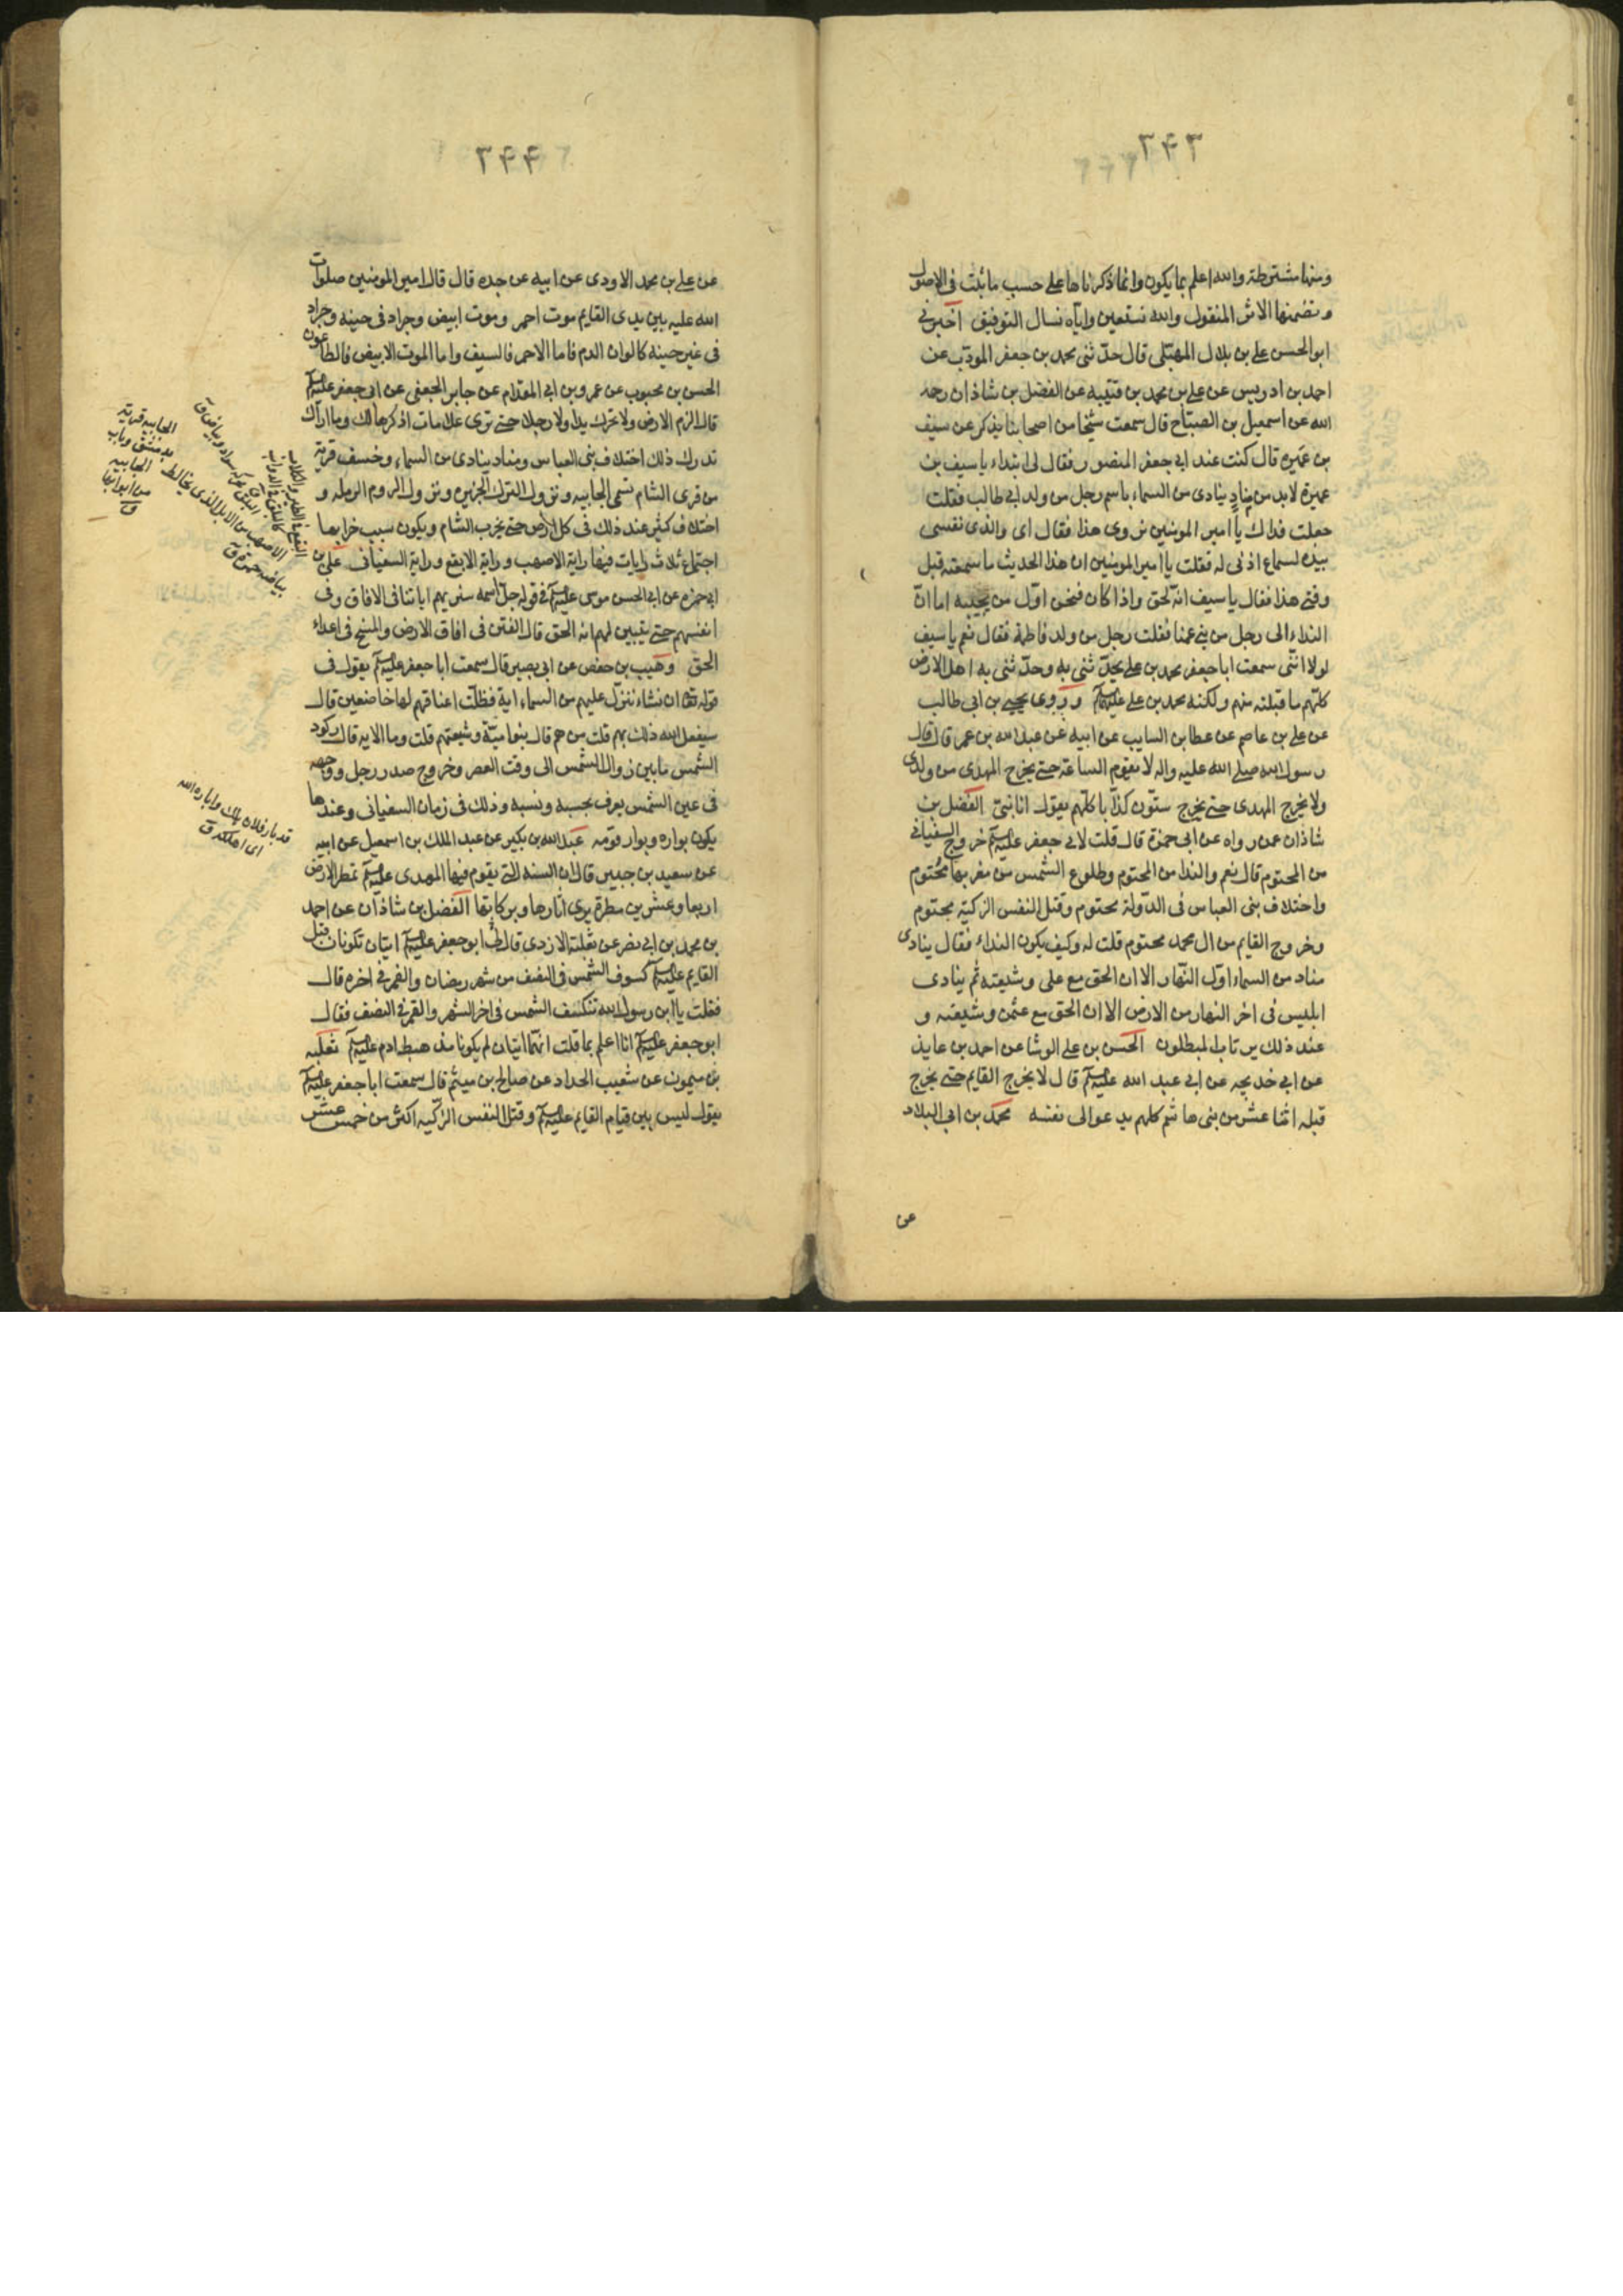 ٣۴٣
ومنها مشترطة والله اعلم بما يكون وانما ذكرناها على حسب ما ثبت في الاصول
وتضمنها الاثر المنقول والله نستعين واياه نسال التوفيق اخبرني
ابو الحسن علي بن بلال المهلبي قال حدثني محمد بن جعفر المودب عن
احمد بن ادريس عن علي بن محمد بن قتيبه عن الفضل بن شاذان رحمه
الله عن اسمعيل بن الصباح قال سمعت شيخا من اصحابنا يذكر عن سيف
بن عميره قال كنت عند ابي جعفر المنصور فقال لي ابتداء يا سيف بن
عميرة لا بد من مناد ينادي من السماء باسم رجل من ولد ابي طالب فقلت
جعلت فداك يا امير المومنين تروي هذا فقال اي والذي نفسي
بيده لسماع اذني له فقلت يا امير المومنين ان هذا الحديث ما سمعته قبل
وقتي هذا فقال يا سيف انه لحق واذا كان فنحن اول من يجيبه اما ان
النداء الى رجل من بني عمنا فقلت رجل من ولد فاطمة فقال نعم يا سيف
لولا انني سمعت ابا جعفر محمد بن علي يحدثني به وحدثني به اهل الارض
كلهم ما قبلته منهم ولكنه محمد بن علي عليهما السلم وروى يحيى بن ابي طالب
عن علي بن عاصم عن عطا بن السايب عن ابيه عن عبد الله بن عمر قال قال
رسول الله صلى الله عليه واله لا يقوم الساعة حتى يخرج المهدي من ولدي
ولا يخرج المهدي حتى يخرج ستون كذابا كلهم يقول انا نبي الفضل بن
شاذان عمن رواه عن ابي حمزة قال قلت لابي جعفر عليه السلم خروج السفياني
من المحتوم قال نعم والندا من المحتوم وطلوع الشمس من مغربها محتوم
واختلاف بني العباس في الدولة محتوم وقتل النفس الزكية محتوم
وخروج القايم من ال محمد محتوم قلت له وكيف يكون النداء فقال ينادي
مناد من السماء اول النهار الا ان الحق مع علي وشيعته ثم ينادي
ابليس في اخر النهار من الارض الا ان الحق مع عثمن وشيعته و
عند ذلك يرتاب المبطلون الحسن بن علي الوشا عن احمد بن عايذ
عن ابي خديجه عن ابي عبد الله عليه السلم قال لا يخرج القايم حتى يخرج
قبله اثنا عشر من بني هاشم كلهم يدعو الى نفسه محمد بن ابي البلاد
عن
٣۴۴
عن علي بن محمد الاودي عن ابيه عن جده قال قال امير المومنين صلوات
الله عليه بين يدي القايم موت احمر وموت ابيض وجراد في حينه وجراد
في غير حينه كالوان الدم فاما الاحمر فالسيف واما الموت الابيض فالطاعون
الحسن بن محبوب عن عمرو بن ابي المقدام عن جابر الجعفي عن ابي جعفر عليه السلم
قال الزم الارض ولا تحرك يدا ولا رجلا حتى ترى علامات اذكرها لك وما اراك
تدرك ذلك اختلاف بني العباس ومناد ينادي من السماء وخسف قرية
من قرى الشام تسمى الجابيه ونزول الترك الجزيره ونزول الروم الرمله و
اختلاف كثير عند ذلك في كل ارض حتى يخرب الشام ويكون سبب خرابها
اجتماع ثلاث رايات فيها راية الاصهب وراية الابقع وراية السفياني علي بن
ابي حمزه عن ابي الحسن موسى عليه السلم في قوله جل اسمه سنريهم اياتنا في الافاق وفي
انفسهم حتى يتبين لهم انه الحق قال الفتن في افاق الارض والمسخ في اعداء
الحق وهيب بن حفص عن ابي بصير قال سمعت ابا جعفر عليه السلم يقول في
قوله تعه ان نشاء ننزل عليهم من السماء اية فظلت اعناقهم لها خاضعين قال
سيفعل الله ذلك بهم قلت من هم قال بنو امية وشيعتهم قلت وما الايه قال ركود
الشمس ما بين زوال الشمس الى وقت العصر وخروج صدر رجل ووجهه
في عين الشمس يعرف بحسبه ونسبه وذلك في زمان السفياني وعندها
يكون بواره وبوار قومه عبد الله بن بكير عن عبد الملك بن اسمعيل عن ابيه
عن سعيد بن جبير قال ان السنه التي يقوم فيها المهدي عليه السلم تمطر الارض
اربعا وعشرين مطرة يرى اثارها وبركاتها الفضل بن شاذان عن احمد
بن محمد بن ابي نصر عن ثعلبة الازدي قال قال ابو جعفر عليه السلم ايتان تكونان قبل
القايم عليه السلم كسوف الشمس في النصف من شهر رمضان والقمر في اخره قال
فقلت يا ابن رسول الله تنكسف الشمس في اخر الشهر والقمر في النصف فقال
ابو جعفر عليه السلم انا اعلم بما قلت انهما ايتان لم يكونا منذ هبط ادم عليه السلم ثعلبه
بن ميمون عن شعيب الحداد عن صالح بن ميثم قال سمعت ابا جعفر عليه السلم
يقول ليس بين قيام القايم عليه السلم وقتل النفس الزكيه اكثر من خمس عشر
الجابيه قرية
بدمشق وباب
الجابيه
من ابوابها
ق
البقع في الطير والكلاب
كالبلق في الدواب
البلق محركة سواد وبياض ق
الاصهب من الابل الذي يخالط
بياضه حمرة ق
قد بار فلان هلك واباره الله
اي اهلكه ق